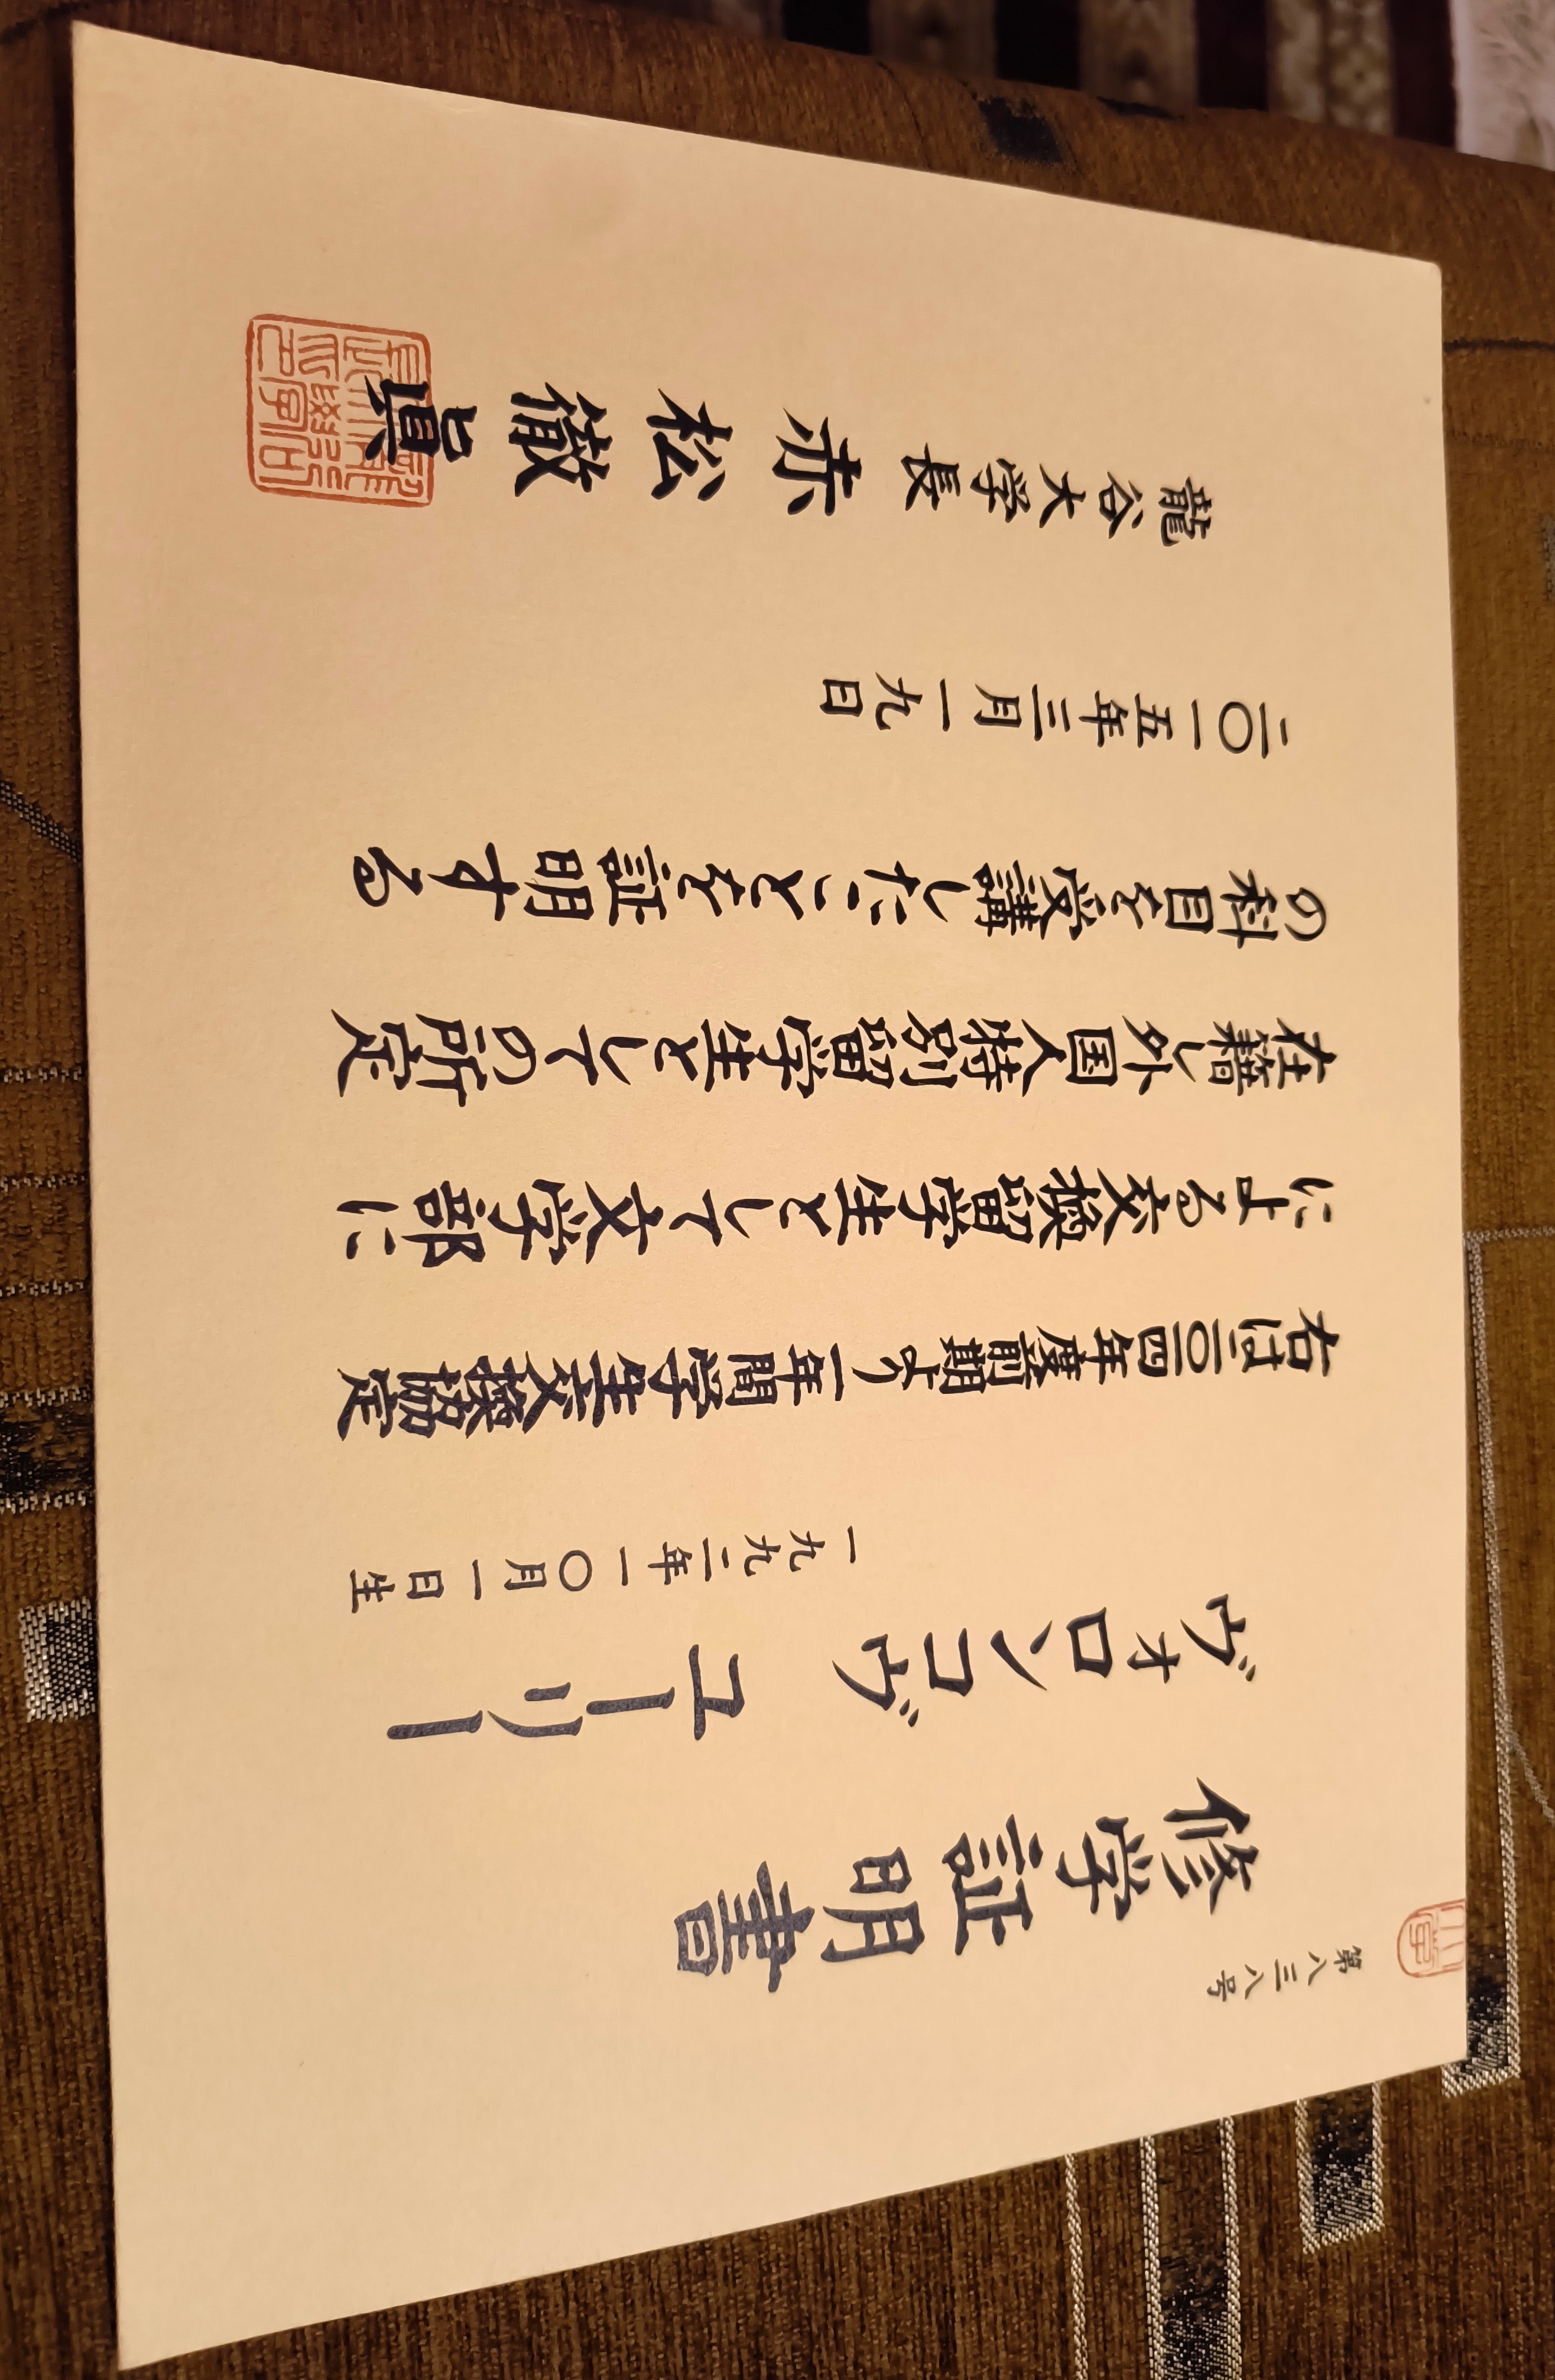 第八三八号
修学証明書
ヴォロンコヴ ユーリー
一九九二年一〇月一日生
右は二〇一四年度前期より一年間学生交換協定
による交換留学生として文学部に
在籍し外国人特別留学生としての所定
の科目を受講したことを証明する
二〇一五年三月一九日
龍谷大学長 赤松徹眞